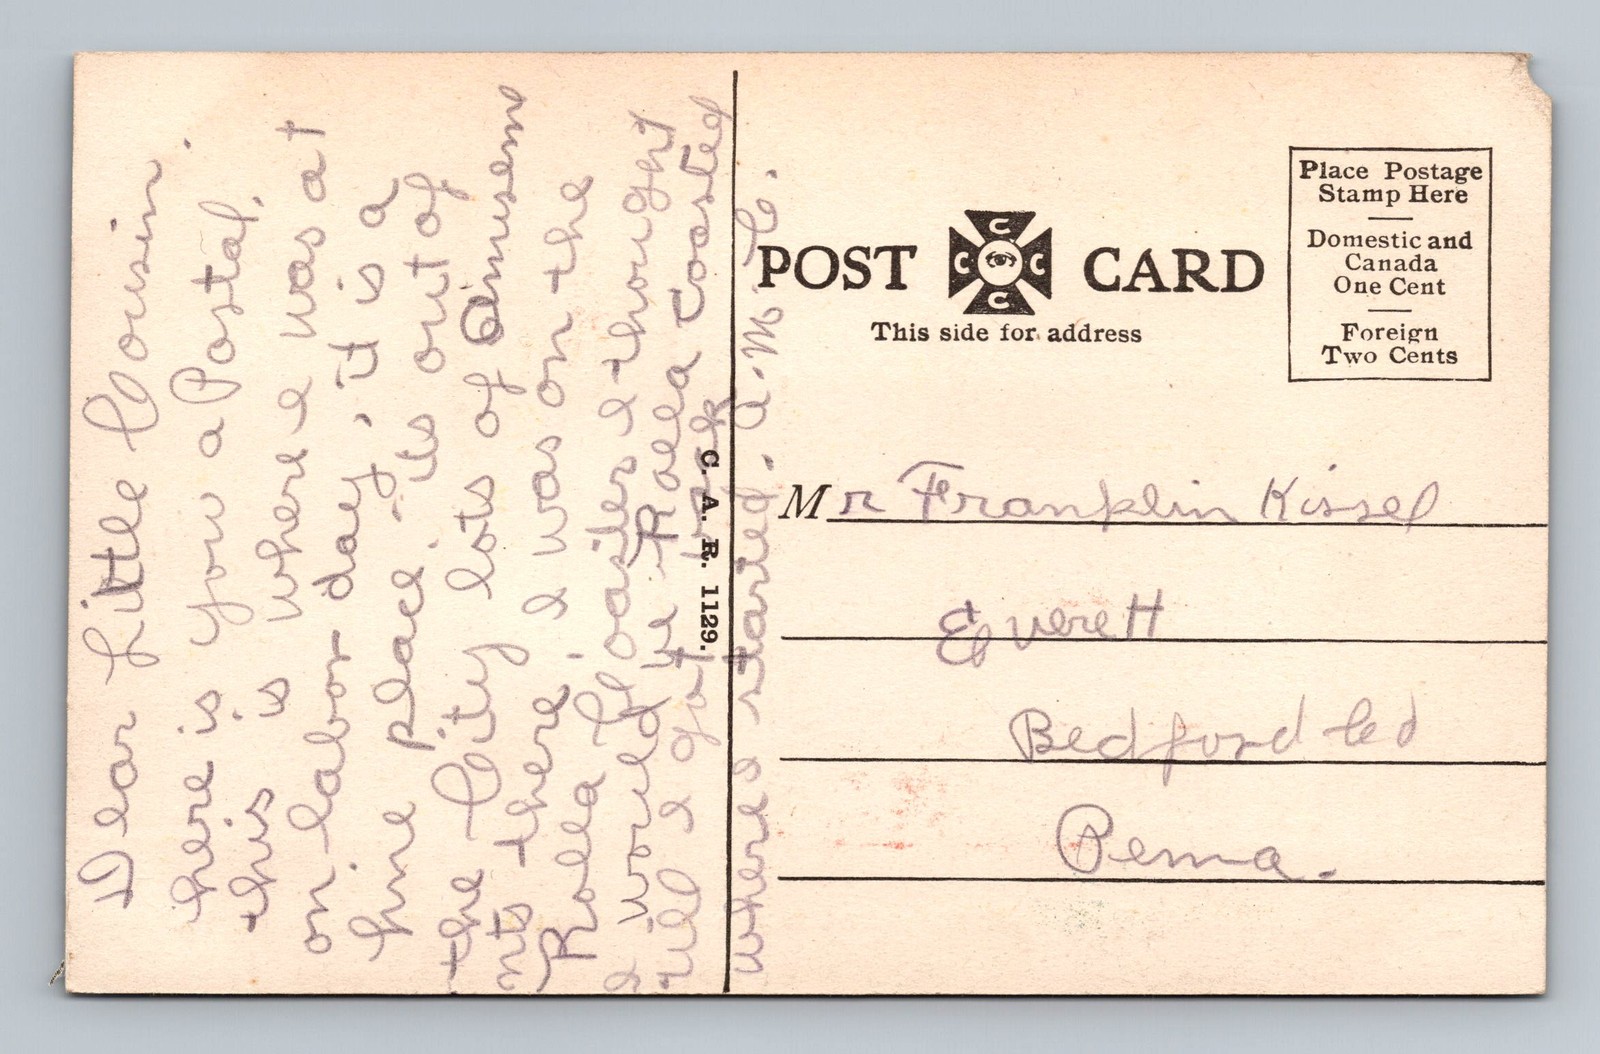 Dear Little Cousin.
here is you a Postal,
this is where I was at
on labor day, it is a
hine place. its out of
the City lots of Amusem
nts there. I was on the
Rolla Coaster I thought
I would be Rolla coasted
till I got back
where I started. A. M. C.
C. A. R. 1129.
POST CARD
C C C C
This side for address
Place Postage
Stamp Here
Domestic and
Canada
One Cent
Foreign
Two Cents
Mr Franklin Kissel
Everett
Bedford Co
Penna.